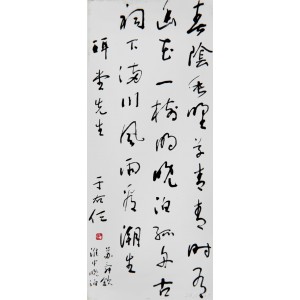 春陰垂野草青青時有
幽花一樹明晚泊孤舟古
祠下滿川風雨看潮生
堂先生
于右任
蘇舜欽
淮中晚泊